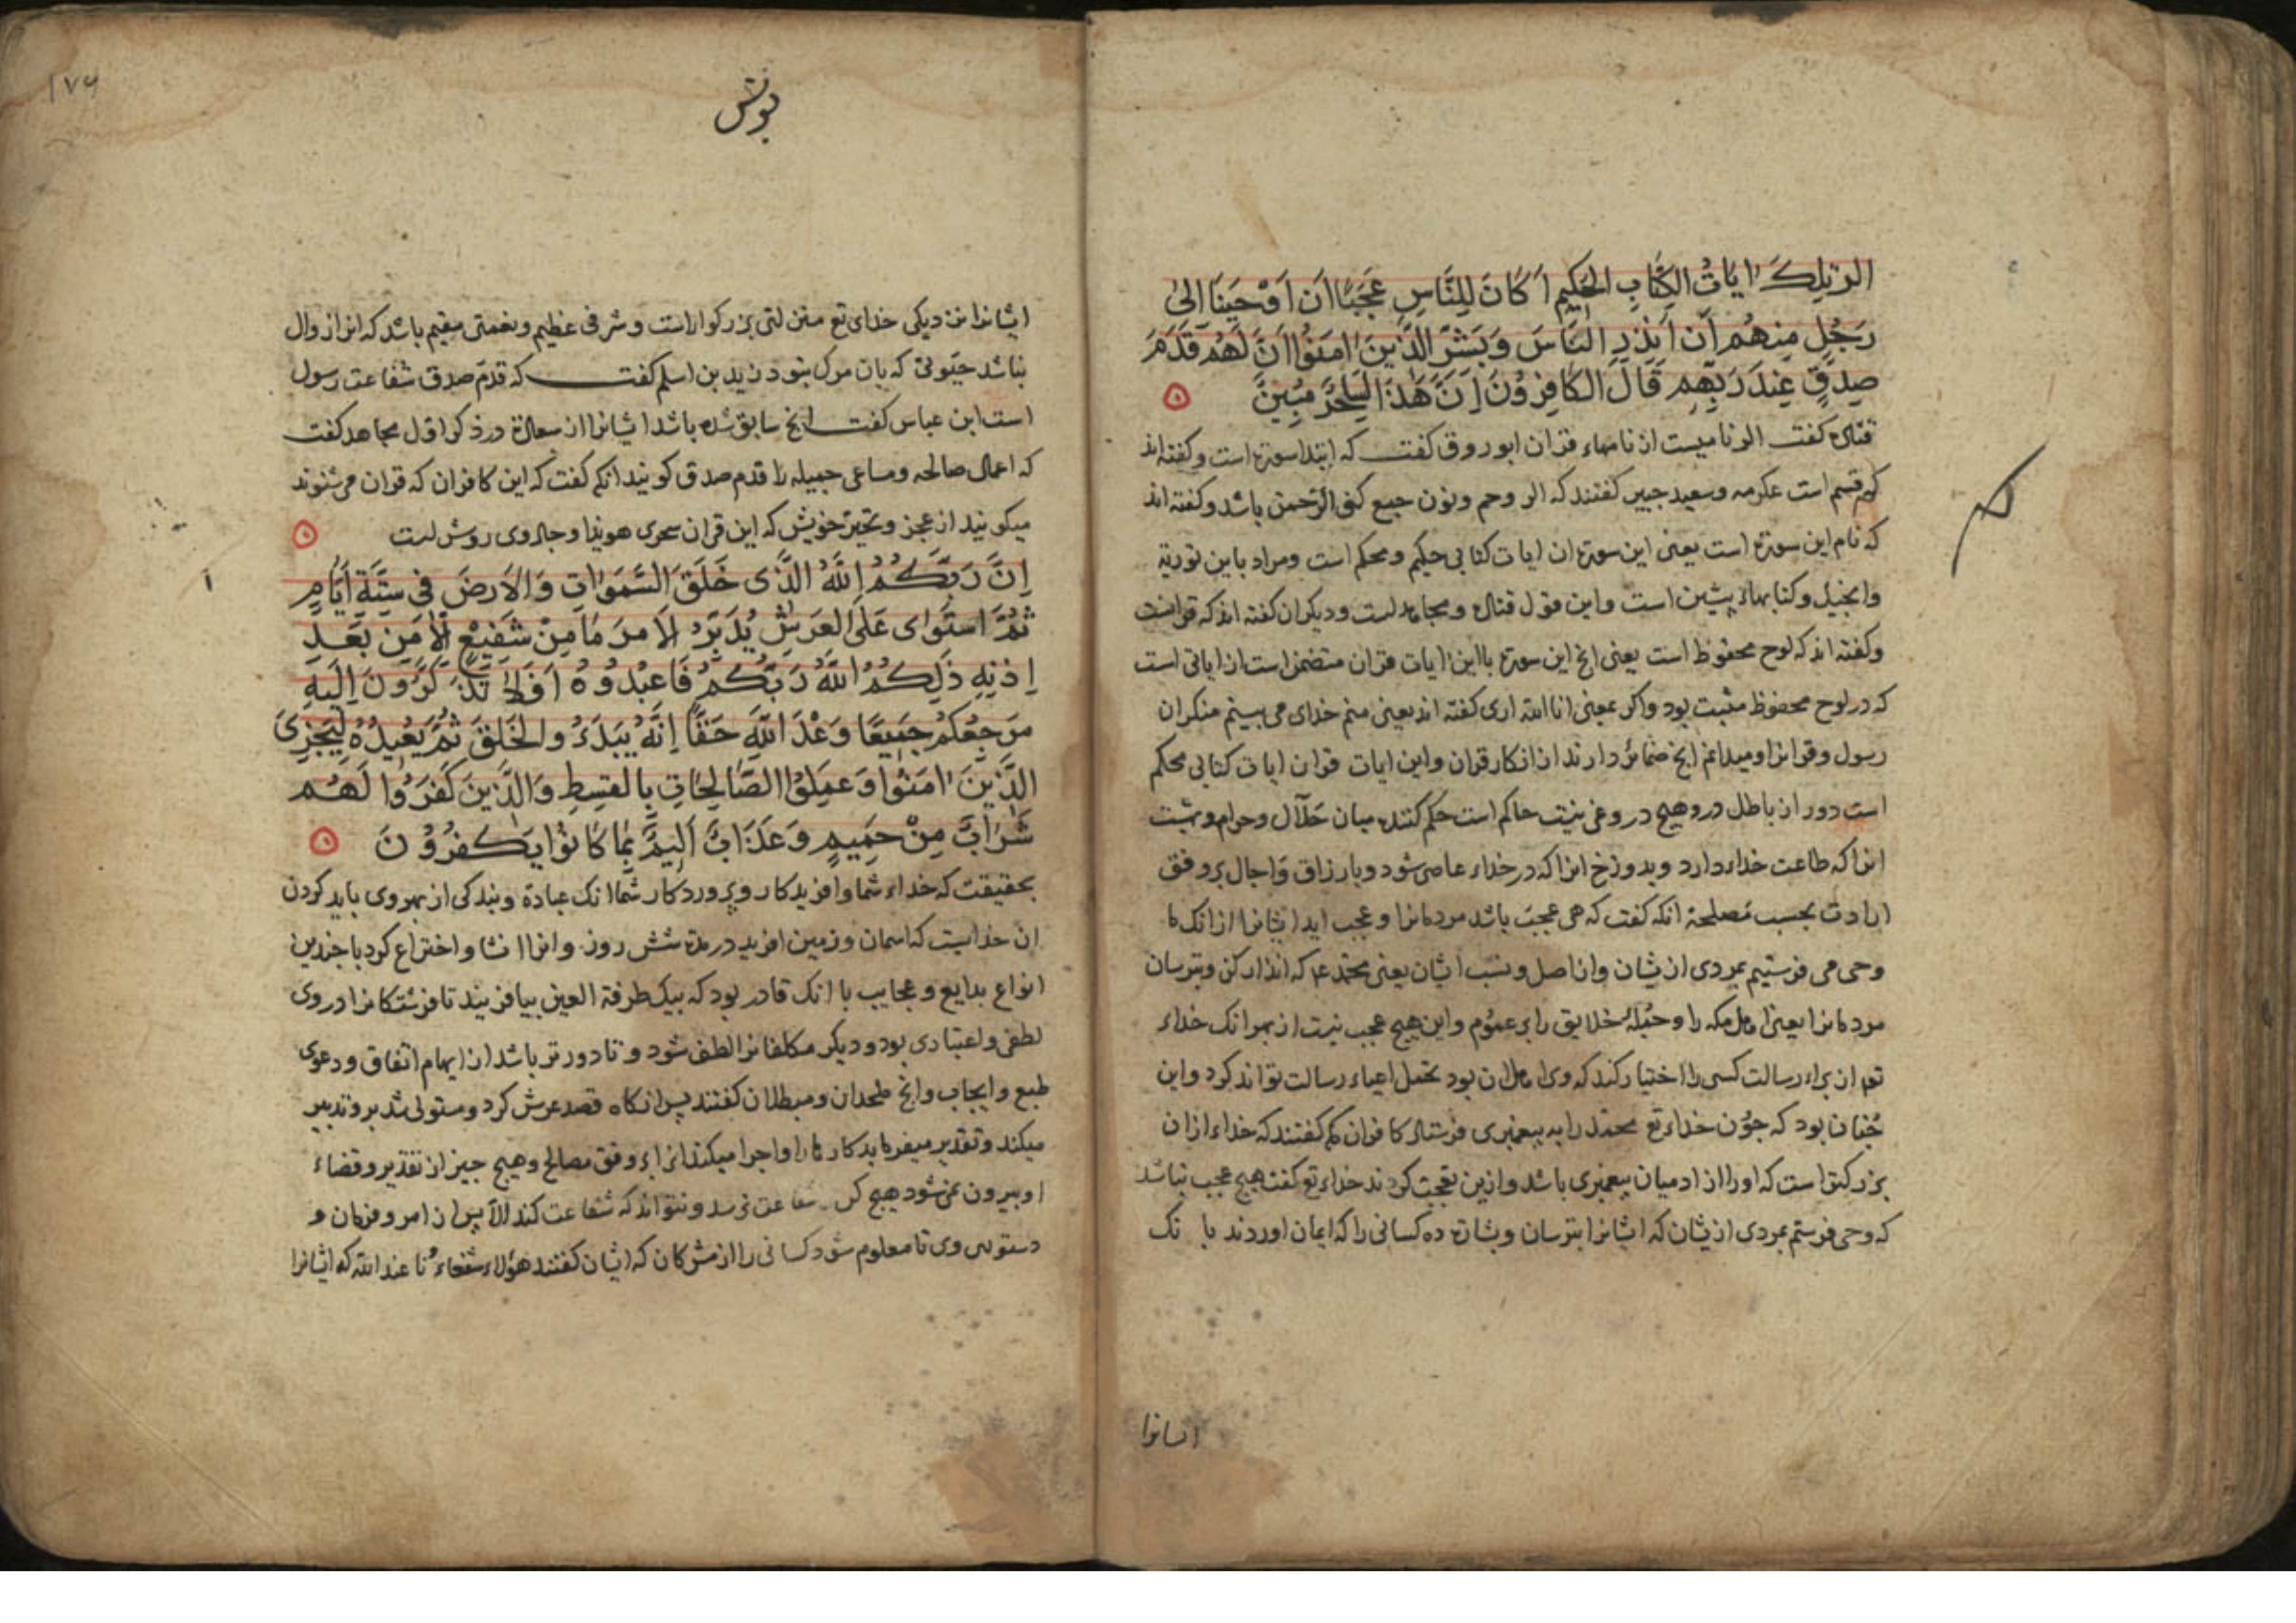 الر تلك ایات الكتاب الحكیم اكان للناس عجبا ان اوحینا الی
رجل منهم ان انذر الناس وبشر الذین امنوا ان لهم قدم
صدق عند ربهم قال الكافرون ان هذا لساحر مبین
قتاده كفت الر نامیست از نامهاء قران ابوروق كفت كه ابتدا سورة است و كفته اند
كه قسم است عكرمه و سعید جبیر كفتند كه الر و حم و نون جمع كنی الرحمن باشد و كفته اند
كه نام این سورة است یعنی این سورة ان ایات كتابی حكیم و محكم است و مراد باین توریة
وانجیل و كتابهاء پیشین است و این قول قتاده و مجاهدست و دیكران كفته اند كه قرانست
و كفته اند كه لوح محفوظ است یعنی انج این سورة باین ایات قران متضمن است از ایاتی است
كه در لوح محفوظ مثبت بود واكر بمعنی انا الله اری كفته اند یعنی منم خدای می بینم منكران
رسول و قرانرا و میدانم انج ضمائر دارند از انكار قران و این ایات قران ایات كتابی محكم
است دور از باطل درو هیچ دروغی نیست حاكم است حكم كننده میان حلال و حرام و بهشت
انرا كه طاعت خداء دارد و بدوزخ انرا كه در خداء عاصی شود و بارزاق و اجال بر وفق
ارادت بحسب مصلحة انكه كفت كه هی عجب باشد مردمانرا و عجب اید ایشانرا از انك ما
وحی می فرستیم بمردی ازیشان و از اصل و نسب ایشان یعنی محمد ع م كه انذار كن و بترسان
مردمانرا یعنی اهل مكه را و جمله خلایق را بر عموم و این هیچ عجب نیست از بهر انك خداء
تع از براء رسالت كسی را اختیار كند كه وی اهل ان بود تحمل اعباء رسالت تواند كرد و این
چنان بود كه چون خداء تع محمد را به پیغمبری فرستاد كافران مكه كفتند كه خداء ازان
بزركتر است كه اورا از ادمیان پیغمبری باشد و ازین تعجب كردند خداء تع كفت هیچ عجب نباشد
كه وحی فرستم بمردی ازیشان كه ایشانرا بترسان و بشارة ده كسانی را كه ایمان اوردند با نك
ایسانرا
۱۷۶
یونس
ایشانرا نزدیكی خدای تع منزلتی بزركوارست و شرفی عظیم و نعمتی مقیم باشد كه انرا زوال
نباشد حیوتی كه بان مرك نبود زید بن اسلم كفت كه قدم صدق شفاعت رسول
است ابن عباس كفت انج سابق شده باشد ایشانرا از سعادة در ذكر اول مجاهد كفت
كه اعمال صالحه و مساعی جمیله را قدم صدق كویند انكه كفت كه این كافران كه قران می شنوند
میكویند از عجز و تحیر خویش كه این قران سحری هویدا و جادوی روشن است
ان ربكم الله الذی خلق السموات والارض فی ستة ایام
ثم استوای علی العرش یدبر الامر ما من شفیع الا من بعد
اذنه ذلكم الله ربكم فاعبدوه افلا تذكرون الیه
مرجعكم جمیعا وعد الله حقا انه یبدء والخلق ثم یعیده لیجزی
الذین امنوا وعملوا الصالحات بالقسط والذین كفروا لهم
شراب من حمیم وعذاب الیم بما كانوا یكفرون
بحقیقت كه خداء شما وافریدكار و پروردكار شما انك عبادة و بندكی از بهر وی باید كردن
ان خدایست كه اسمان و زمین افرید در مدة شش روز و انرا انشا و اختراع كرد با چندین
انواع بدایع و عجایب با انك قادر بود كه بیك طرفة العین بیافریند تا فرشتكانرا در وی
لطفی و اعتباری بود و دیكر مكلفانرا لطف شود و تا دورتر باشد از ایهام اتفاق و دعوی
طبع و ایجاب و انج ملحدان و مبطلان كفتند پس انكاه قصد عرش كرد و مستولی شد برو تدبیر
میكند و تقدیر میفرماید كارها را و اجرا میكند انرا بر وفق مصالح و هیچ چیز از تقدیر و قضاء
او بیرون نمی شود هیچ كس شفاعت نرسد و نتواند كه شفاعت كند الا پس از امر و فرمان و
دستوری وی تا معلوم شود كسانی را از مشركان كه ایشان كفتند هؤلاء شفعاءنا عند الله كه ایشانرا